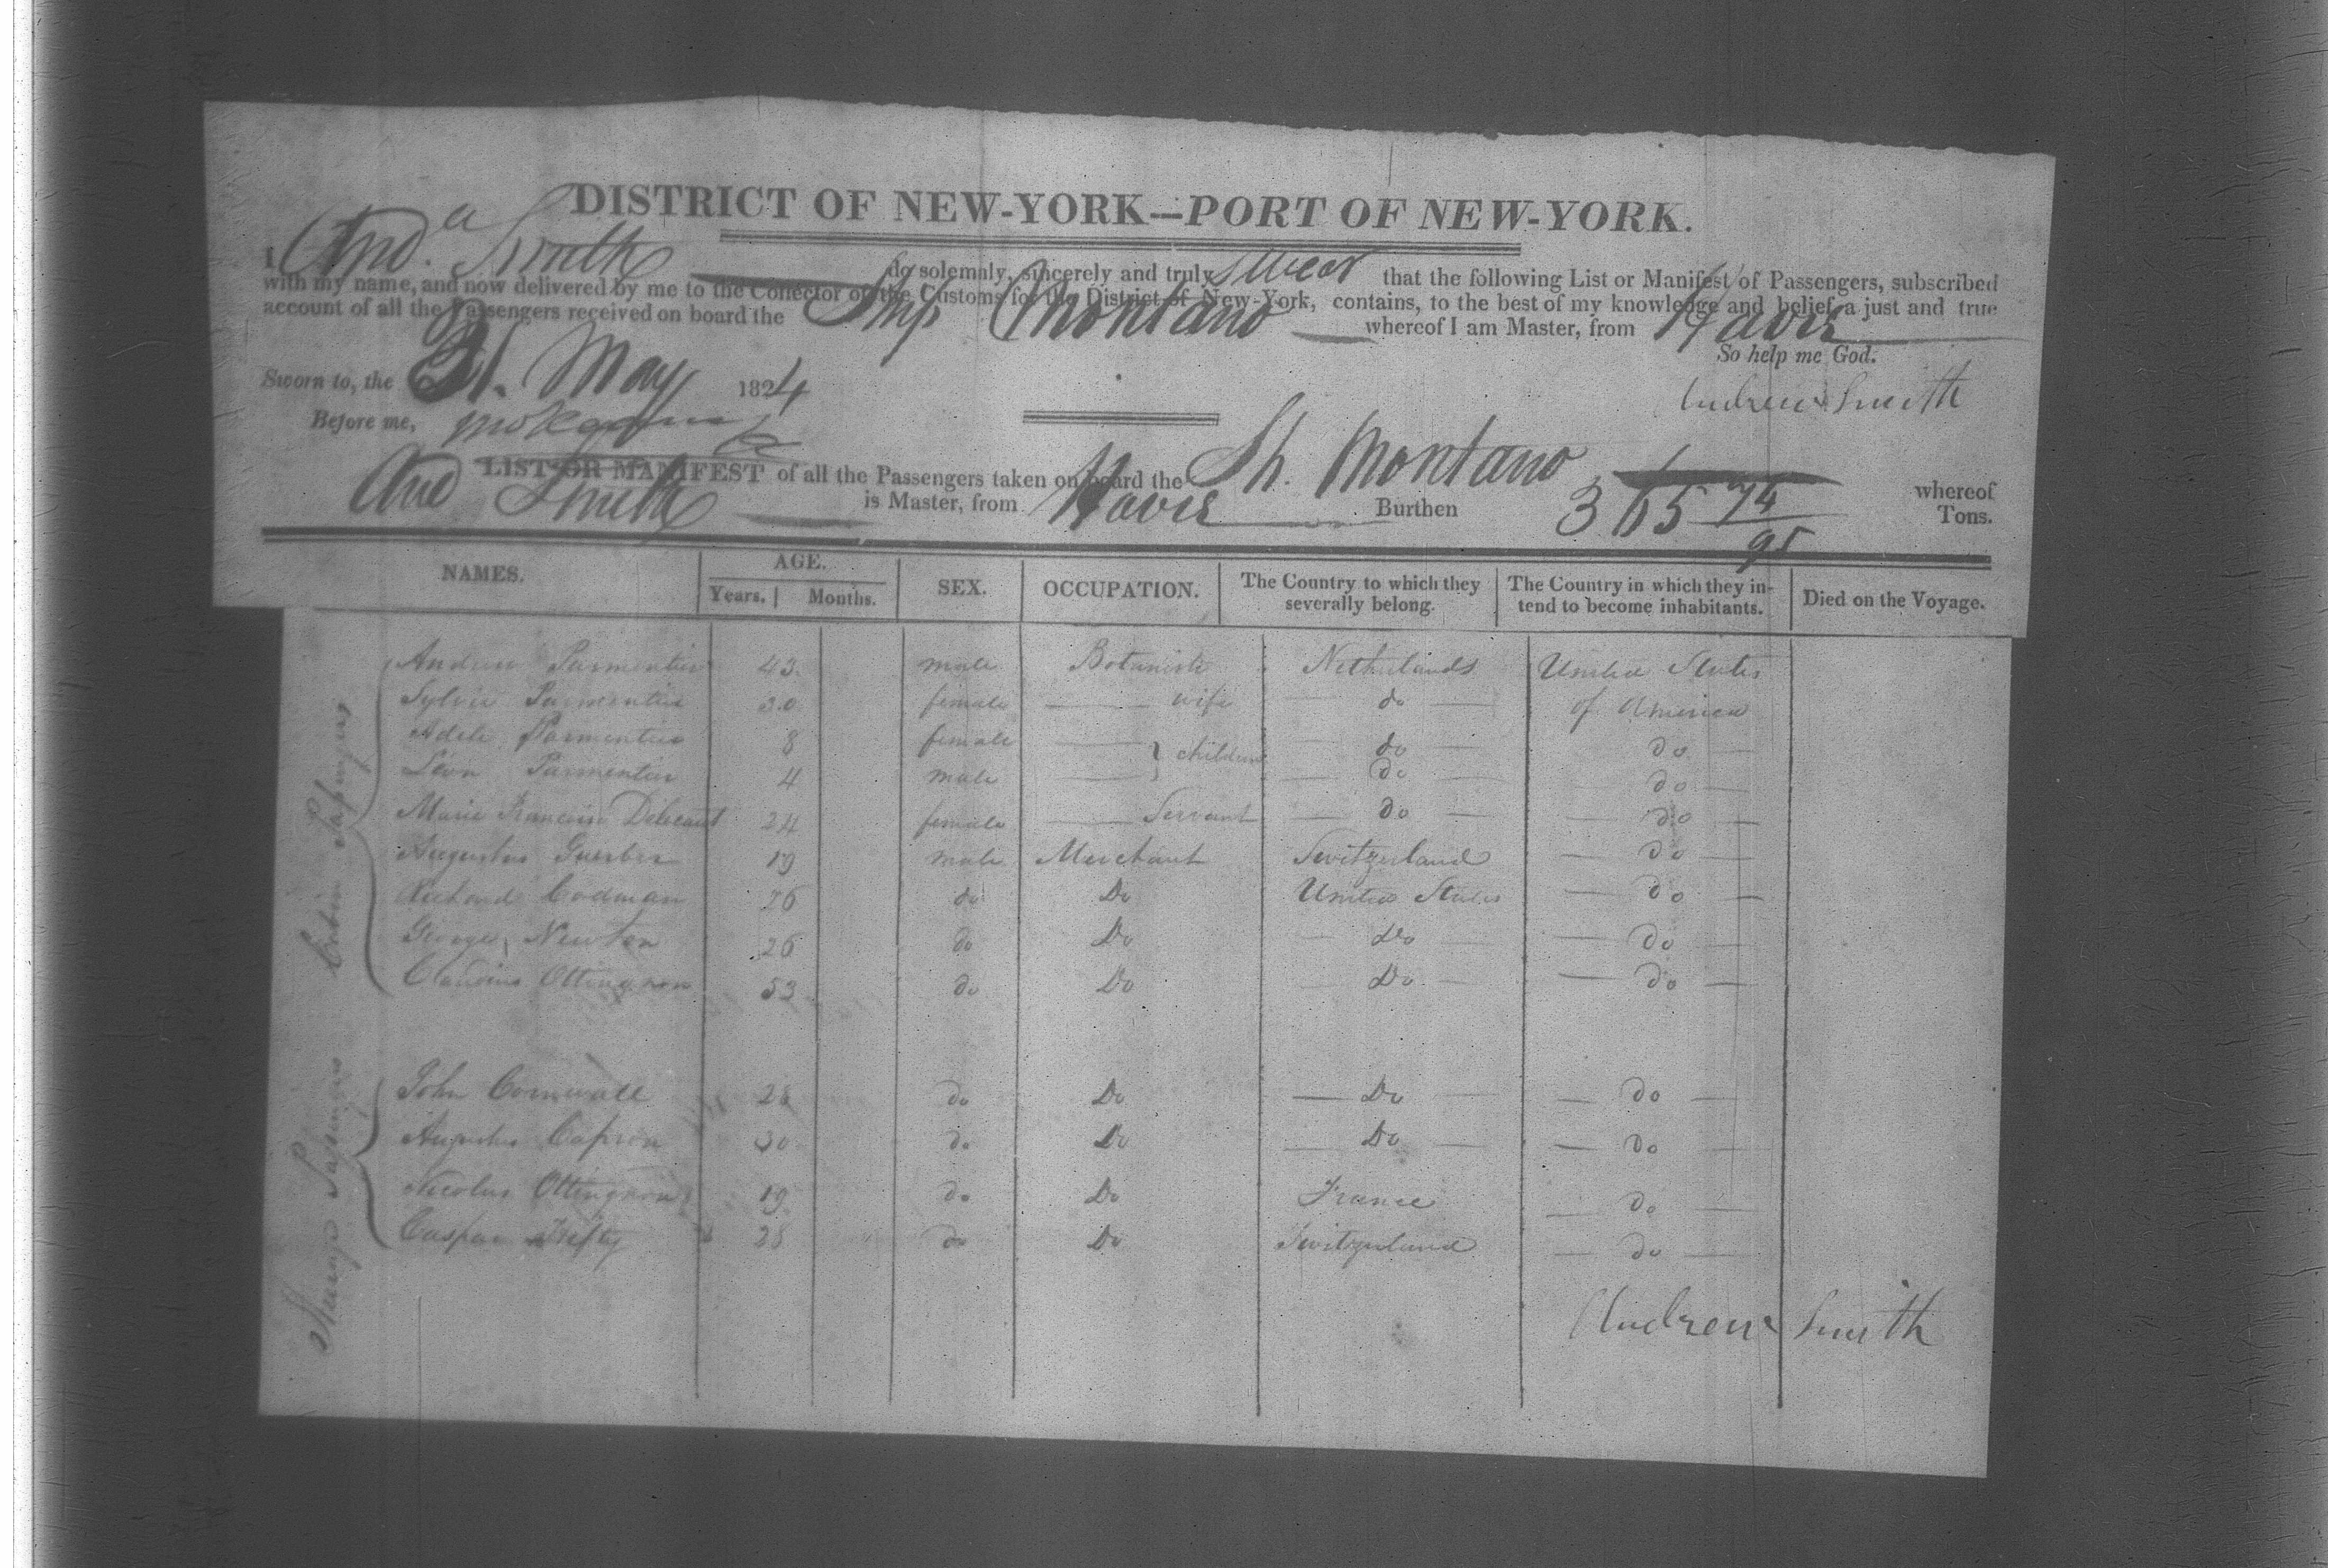 DISTRICT OF NEW-YORK—PORT OF NEW-YORK.
I And.a Smith do solemnly, sincerely and truly swear that the following List or Manifest of Passengers, subscribed
with my name, and now delivered by me to the Collector of the Customs for the District of New-York, contains, to the best of my knowledge and belief, a just and true
account of all the Passengers received on board the Ship Montano whereof I am Master, from Havre
So help me God.
Sworn to, the 31. May 1824
Andrew Smith
Before me,
LIST OR MANIFEST of all the Passengers taken on board the Sh. Montano whereof
And Smith is Master, from Havre Burthen 365 74/95 Tons.
NAMES. AGE. Years. Months. SEX. OCCUPATION. The Country to which they severally belong. The Country in which they intend to become inhabitants. Died on the Voyage.
Cabin Passengers
Andrew Parmentier 43. male Botaniste Netherlands United States
Sylvie Parmentier 30. female — wife — do — of America
Adele Parmentier 8 female — children — do — do —
Léon Parmentier 4 male — — do — do —
Marie Francoise 24 female — Servant — do — — do —
Augustus Guerber 19 male Merchant Switzerland — do —
Richard Codman 26 do Do United States — do —
George Newton 26 do Do — Do — — do —
Claudius Ottingnon 53 do Do — Do — — do —
Steerage Passengers
John Cornwall 28 do Do — Do — — do —
Augustus Capron 30 do Do — Do — — do —
Nicolas Ottingnon 19 do Do France — do —
Caspar 28 do Do Switzerland — do —
Andrew Smith